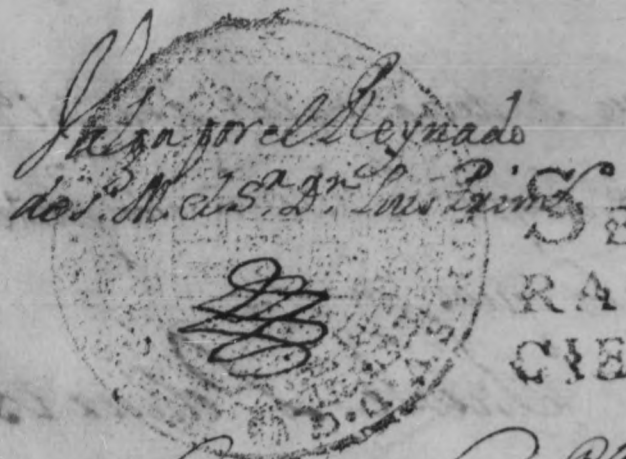 Valga por el Reynado
de S. M. el S.r D.n Luis Primo
SE
RA
CIE